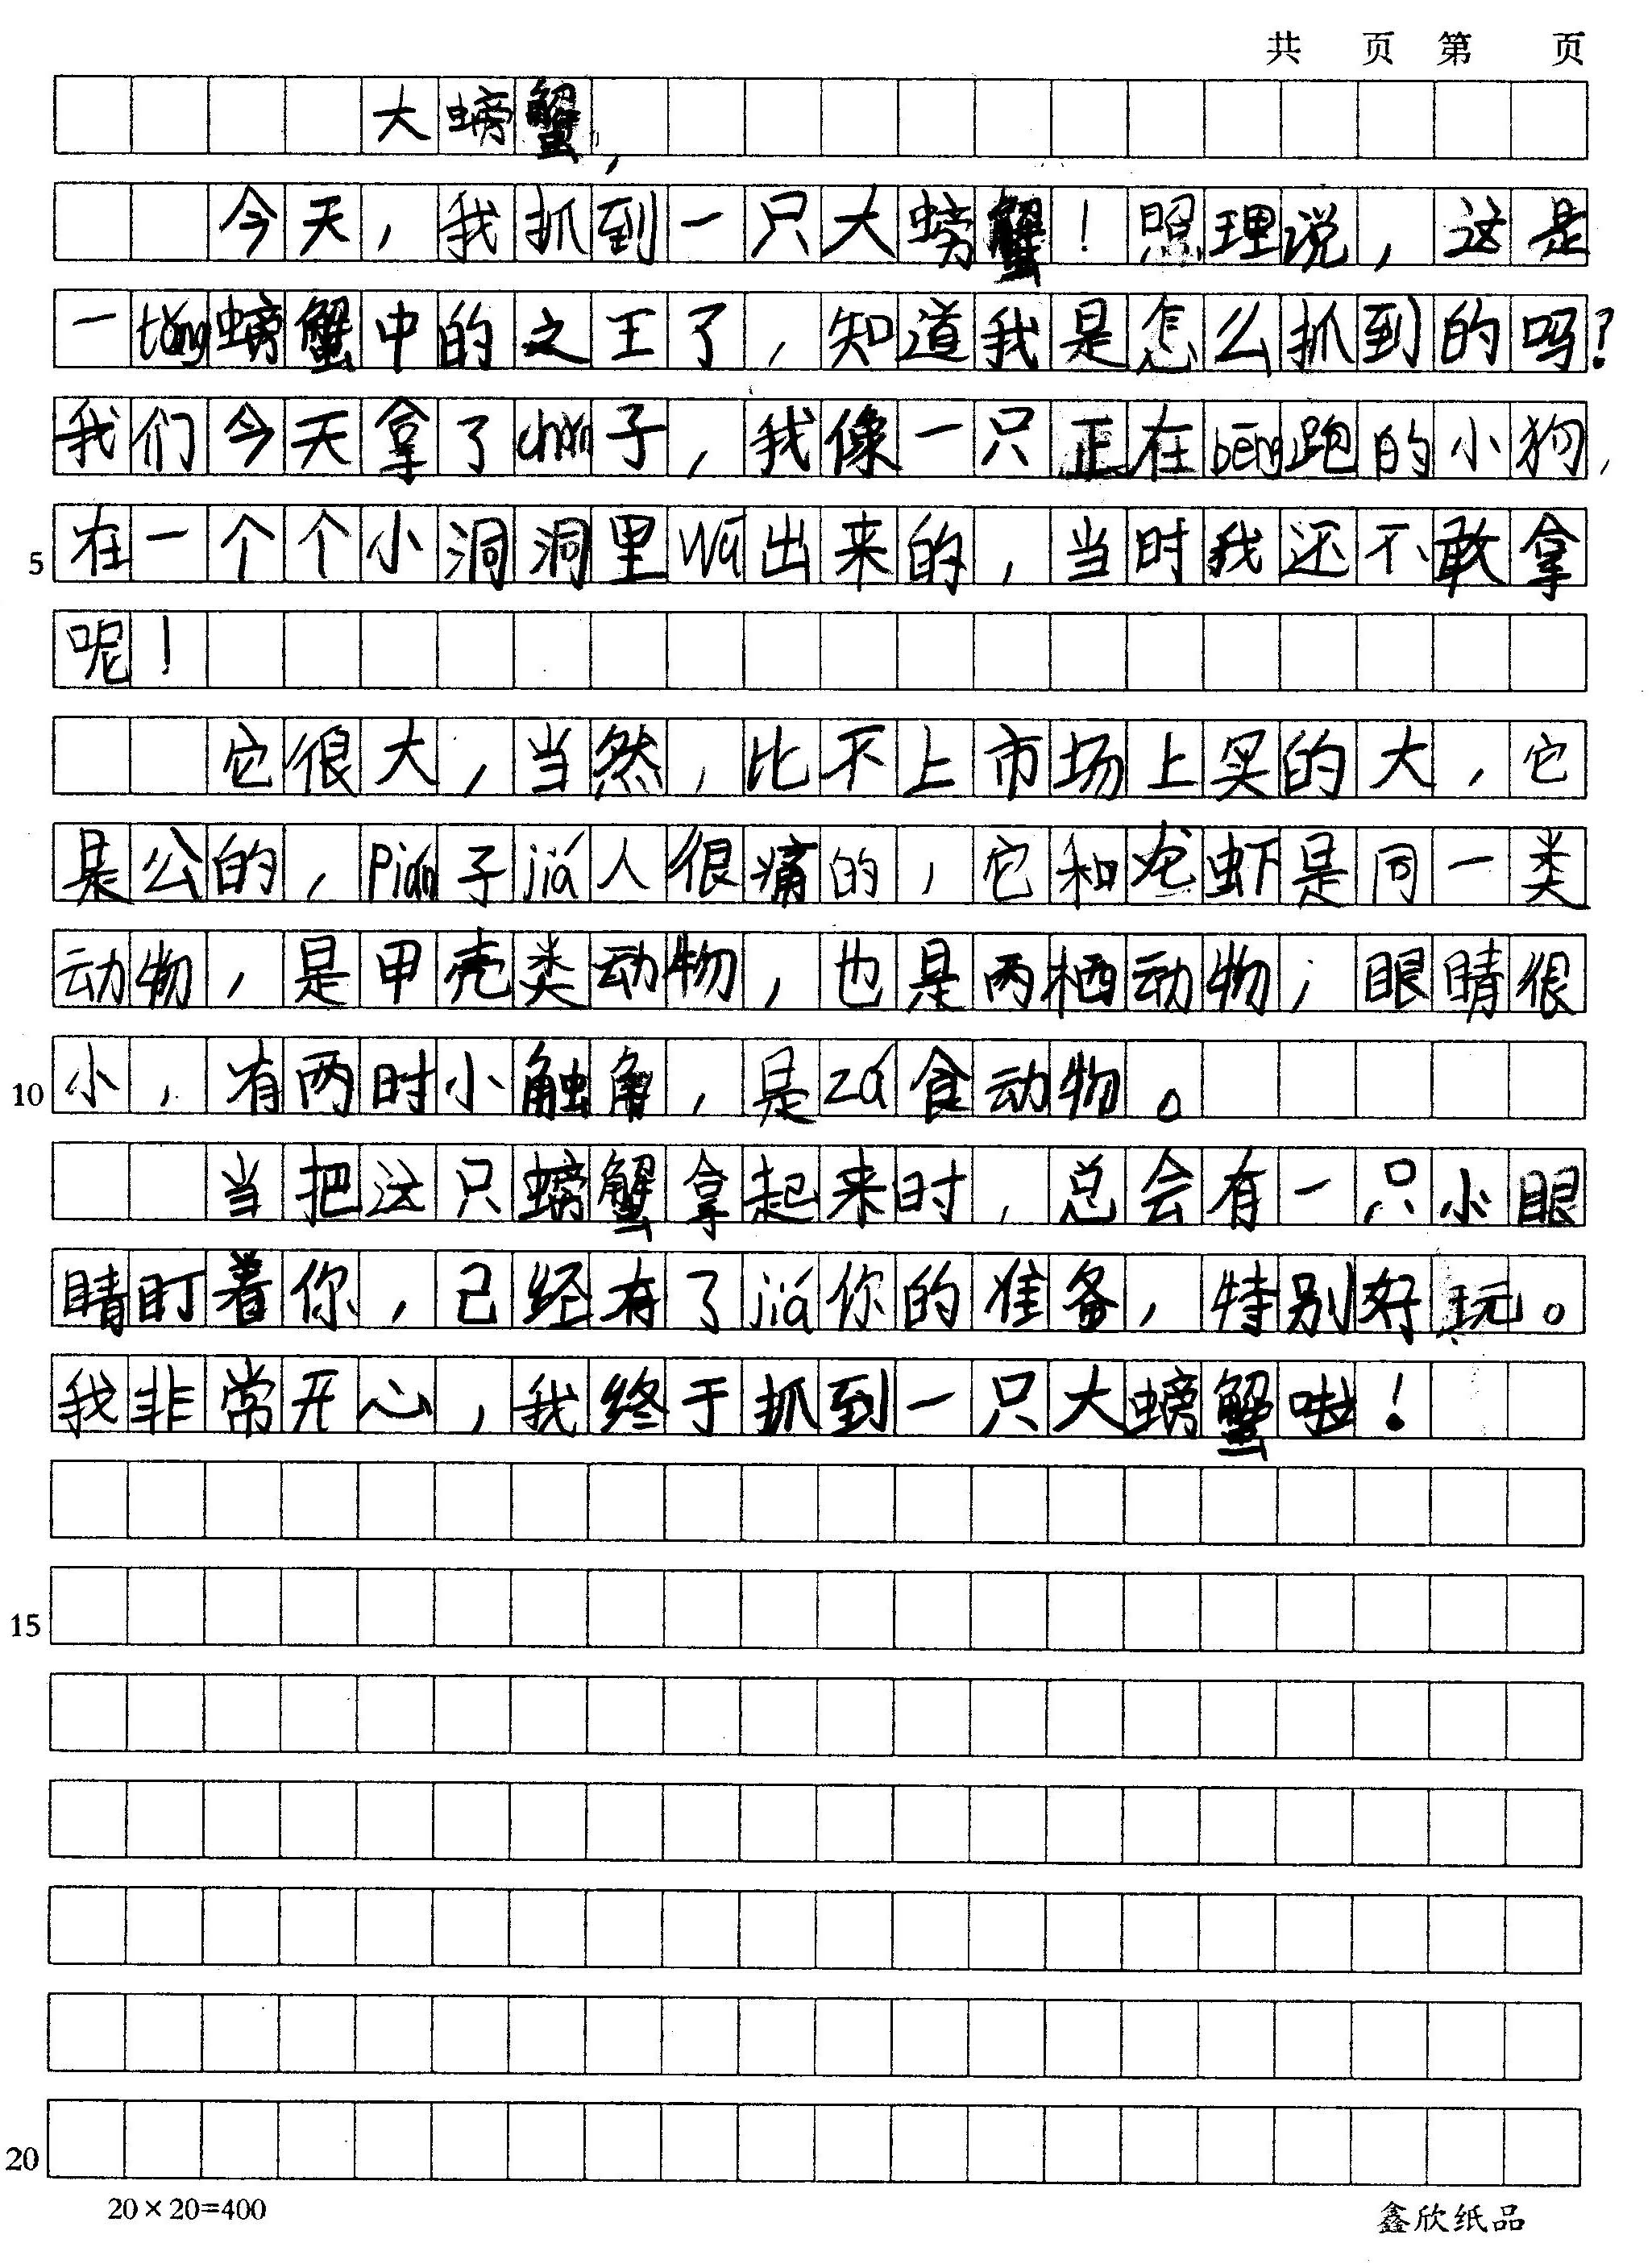 共 页 第 页
大螃蟹
今天，我抓到一只大螃蟹！照理说，这是
一tǒng螃蟹中的之王了，知道我是怎么抓到的吗？
我们今天拿了chǎn子，我像一只正在bēng跑的小狗，
5 在一个个小洞洞里wā出来的，当时我还不敢拿
呢！
它很大，当然，比不上市场上买的大，它
是公的，pián子jiá人很痛的，它和龙虾是同一类
动物，是甲壳类动物，也是两栖动物；眼睛很
10 小，有两时小触角，是zá食动物。
当把这只螃蟹拿起来时，总会有一只小眼
睛盯着你，已经有了jiá你的准备，特别好玩。
我非常开心，我终于抓到一只大螃蟹啦！
15
20
20×20=400 鑫欣纸品